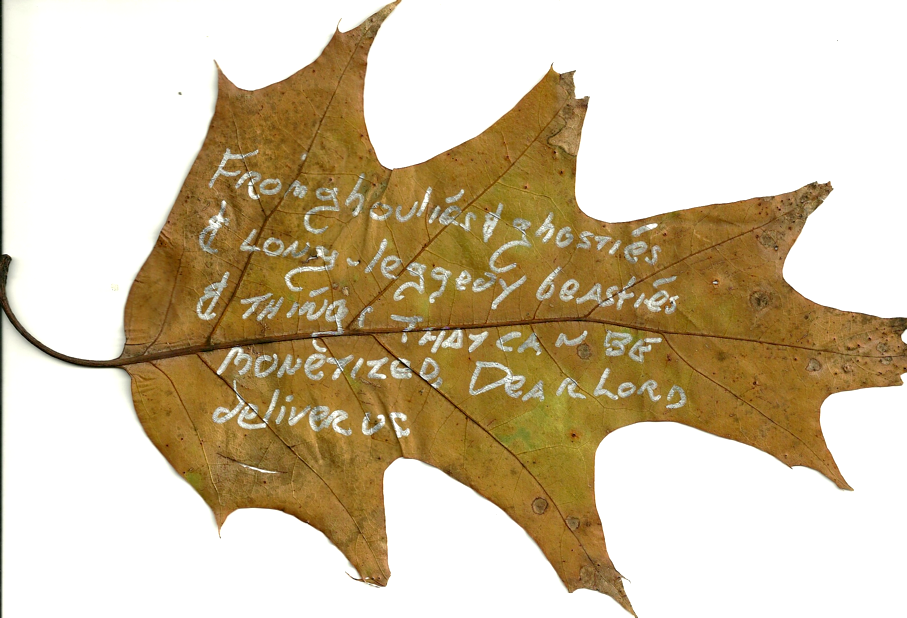 From ghouliés & ghostiés
& LONg-leggedy beastiés
& THINgs THAT CAN BE
MONETIZED, DEAR LORD
deliver us